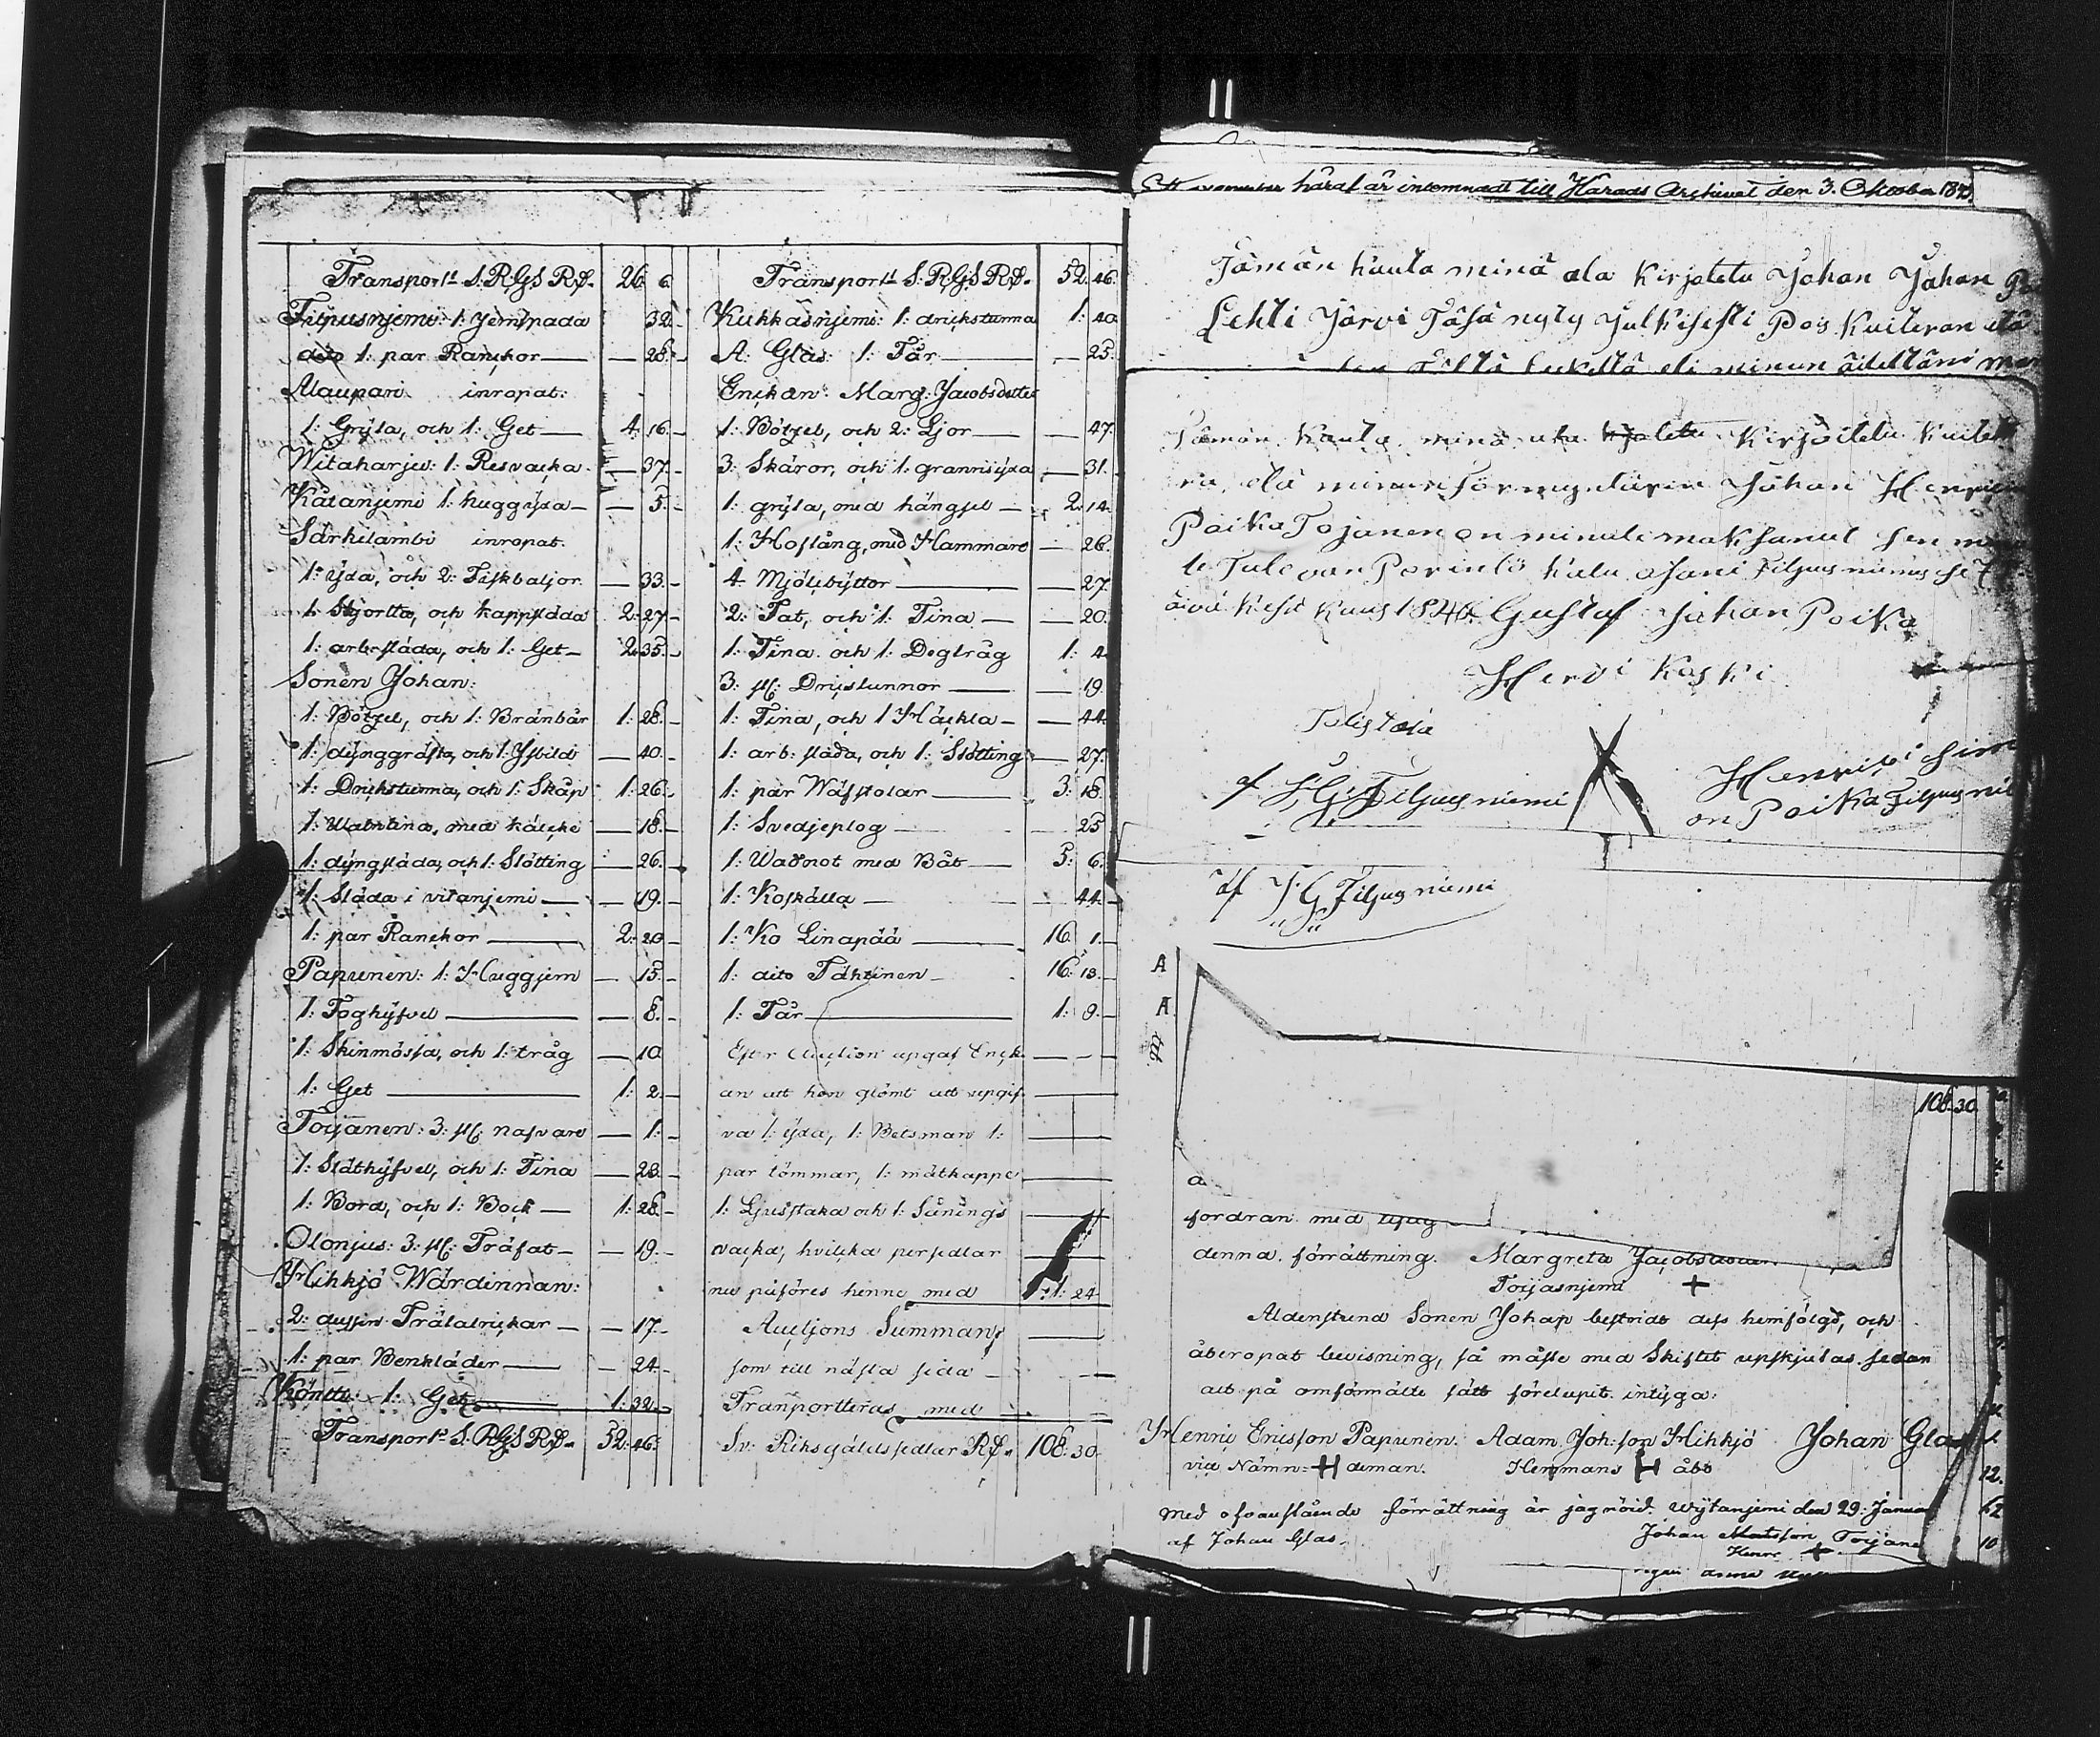 Transport S:RGS RD. 26. 6.
Filpusnjemi: 1: Jernspada 32.
dito 1: par Ranckor — 28.
Alaupari inropat:
1: Gryta, och 1: Get — 4. 16.
Witaharju: 1: Resvacka — 37.
Kätanjemi 1: huggyxa — 5.
Särkilambi inropat.
1: yxa, och 2: Fiskbaljor — 33.
1: Skjortta, och kappsläda 2: 27.
1: arb:släda, och 1: Get — 2: 35.
Sonen Johan:
1: Bötzel, och 1: Bränbår 1: 28.
1: dynggräfta, och 1: Ysbild — 40.
1: Drickstunna, och 1: Skåp 1: 26.
1: med käcke — 18.
1: dyngsläda, och 1: Slötting — 26.
1: Släda i vitanjemi — 19.
1: par Ranckor — 2: 20.
Papunen: 1: Huggjern — 15.
1: Foghyfvel — 8.
1: Skinmössa, och 1: tråg — 10
1: Get — 1: 2.
Torjanen: 3: st: nafvare — 1.
1: Släthyfvel, och 1: Tina — 28.
1: Bord, och 1: Bock — 1: 28.
Olonjus: 3: st: Träfat — 19.
Hihkjö Wärdinnan:
2: dussin Trätalrickar — 17.
1: par Benkläder — 24.
Könttä: 1: Get 1: 32.
Transport S:RGS RD. 52: 46.
Transport S:RGS RD. 52. 46.
Kukkasnjemi: 1: drickstunna 1: 40
A: Glas: 1: Får — 25.
Enckan: Marg: Jacobsdotter
1: Bötzel, och 2: Ljor — 47.
3: Skäror, och 1: grannsyxa — 31.
1: gryta, med hängsel — 2: 14.
1: Hoftång, med Hammare — 28.
4 Mjölsbyttor — 27
2: Fat, och 1: Tina — 20.
1: Tina och 1: Degtråg 1: 4.
3: st: Dricstunnor — 19.
1: Tina, och 1 Häckla — 44.
1: arb: släda, och 1: Slötting — 27.
1: par Wäfstolar — 3: 18.
1: Svedjeplog — 25
1: Wadnot med Båt — 5: 6.
1: Koskälla — 44.
1: Ko Linapää — 16. 1.
1: dito Tähtinen — 16: 13.
1: Får — 1: 9.
Efter Auction upgaf Enck-
an att hon glömt att upgif-
va 1: yxa, 1: Betsman 1:
par tömmar, 1: mätkappe
1: Ljusstaka och 1: Sünings
vacka, hvilcka persedlar
nu påföres henne med 1: 24
Auctjons Summan,
som till nästa sida
Tranportteras med
Sv: Riksgäldssedlar RD. 108. 30.
Ett exemplar häraf är inlemnadt till Härads Archivet den 3. Oktober
Tämän kautta minä ala kirjoletu Johan Johan
Lehti Järvi Täsä nyty Julkisesti Pois Kuiteran etä
minun äidilläni
Tämän Kauta minä ala Kirjoitetu kuitet
ra, elä minun Johan Henrici
Poika Tojanen on minule maksanut sen
le Tulevan Perintö kalu osani Filpus niemis se 7
äivä Kesä Kuus 1846 Gustaf Johan Poika
Hervi Koski
Tolistaja
af J, G. Filpus niemi Henrici Sim
on Poika Filpus ni
af J. G Filpus niemi
A
A
108. 30
a
fordran med
denna förrättning. Margreta Jacobsdotter
Torjasnjemi +
Aldenstund Sonen Johan bestrids dess hemfölgd, och
åberopat bevisning, så måste med Skiftet upskjutas sedan
alt på omförmälte sätt förelupit. intyga:
Henric Ericsson Papunen. Adam Joh:son Hihkjö Johan Glas
vid Nämn= H deman. Hemmans H åbo
12.
Med ofvanstående förrättning är jag nöid. Wytanjemi den 29: Januar
62
af Johan Glas. Johan Matsson Torjane
Henr +
10